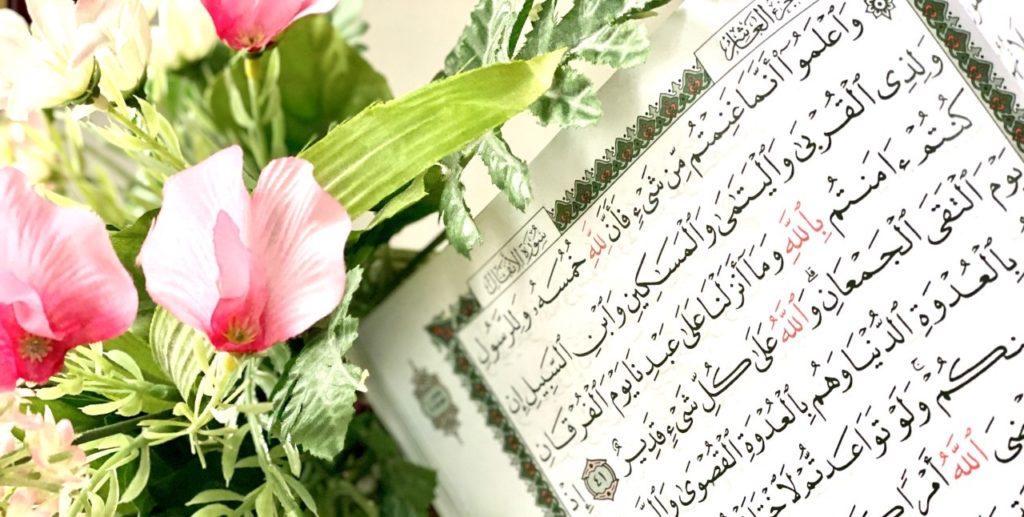 الجزء العاشر
سورة الأنفال
وَٱعْلَمُوٓا۟ أَنَّمَا غَنِمْتُم مِّن شَىْءٍ فَأَنَّ لِلَّهِ خُمُسَهُۥ وَلِلرَّسُولِ
وَلِذِى ٱلْقُرْبَىٰ وَٱلْيَتَٰمَىٰ وَٱلْمَسَٰكِينِ وَٱبْنِ ٱلسَّبِيلِ إِن
كُنتُمْ ءَامَنتُم بِٱللَّهِ وَمَآ أَنزَلْنَا عَلَىٰ عَبْدِنَا يَوْمَ ٱلْفُرْقَانِ
يَوْمَ ٱلْتَقَى ٱلْجَمْعَانِ وَٱللَّهُ عَلَىٰ كُلِّ شَىْءٍ قَدِيرٌ ٤١ إِذْ
بِٱلْعُدْوَةِ ٱلدُّنْيَا وَهُم بِٱلْعُدْوَةِ ٱلْقُصْوَىٰ
مِنكُمْ وَلَوْ تَوَاعَدتُّمْ
ٱللَّهُ أَمْرًا